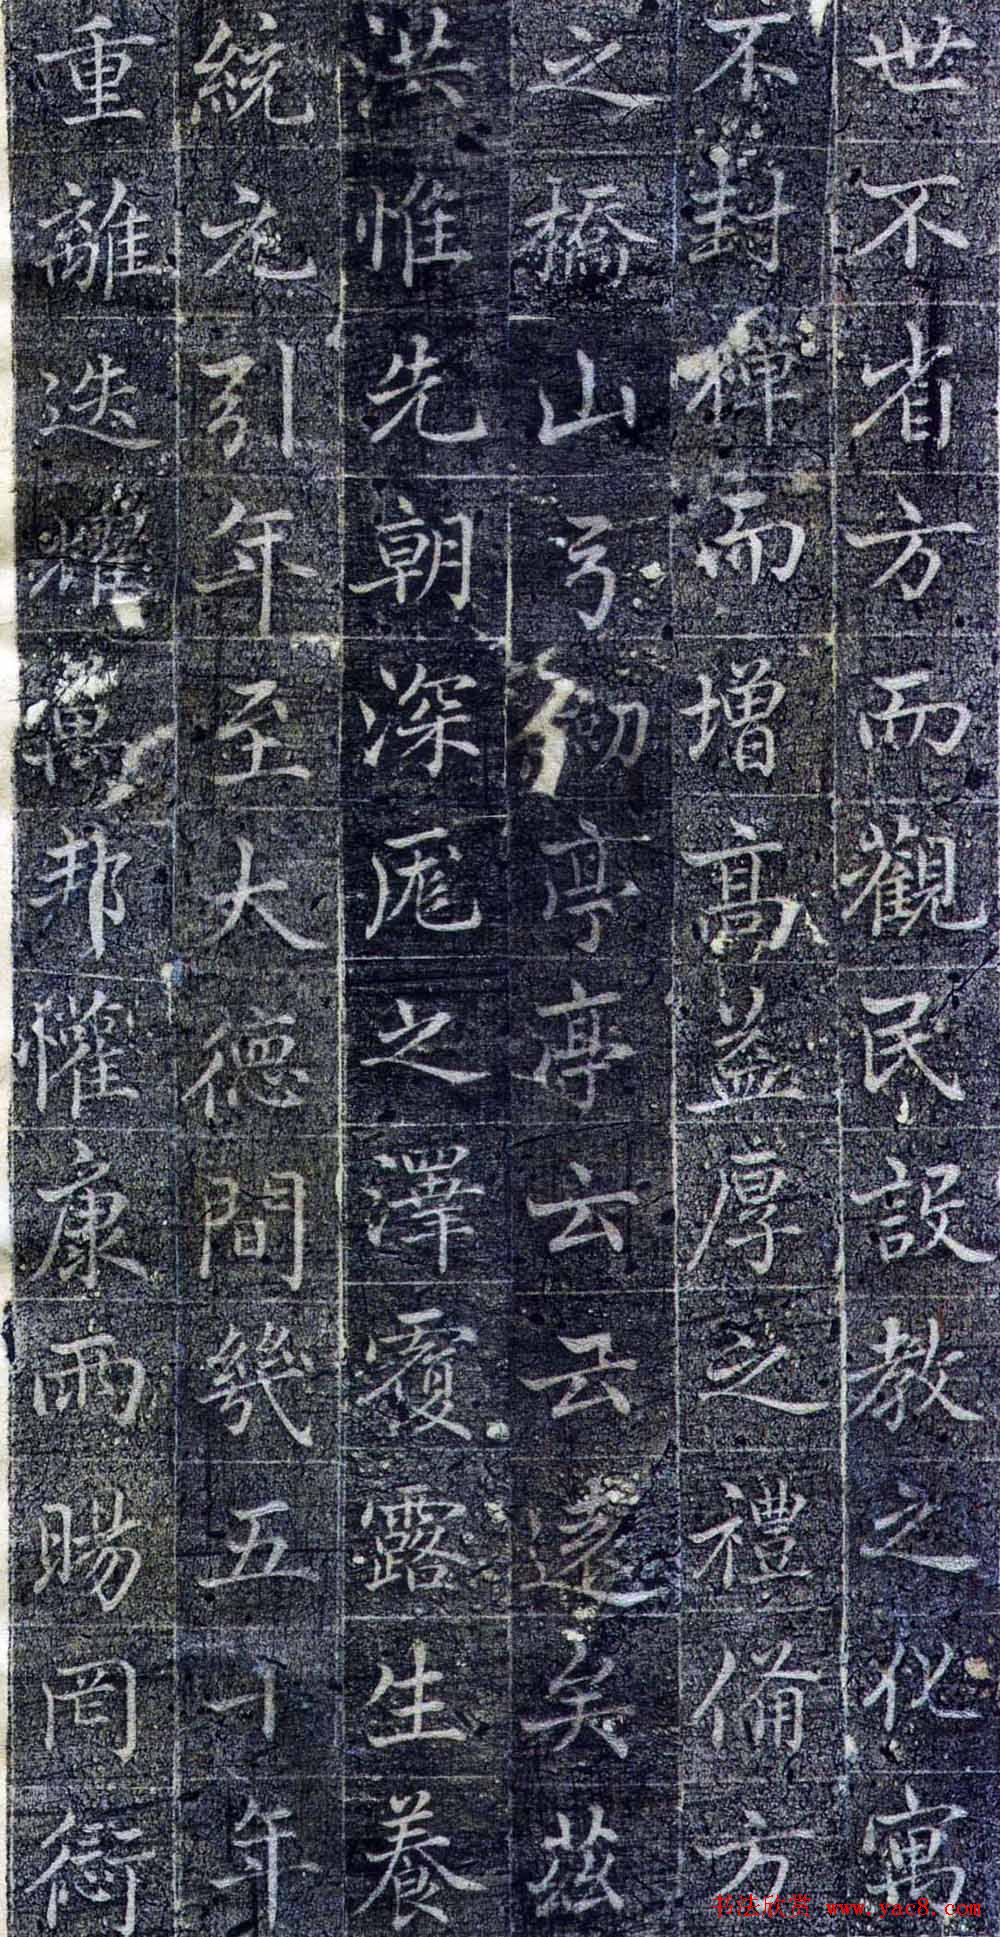 世不省方而觀民設教之化寓
不封禪而增高益厚之禮俻方
之橋山弓劒亭亭云云遠矣茲
洪惟先朝深厖之澤覆露生養
統元引年至大德間幾五十年
重離迭燿萬邦懽康雨暘罔愆
书法欣赏 www.yac8.com